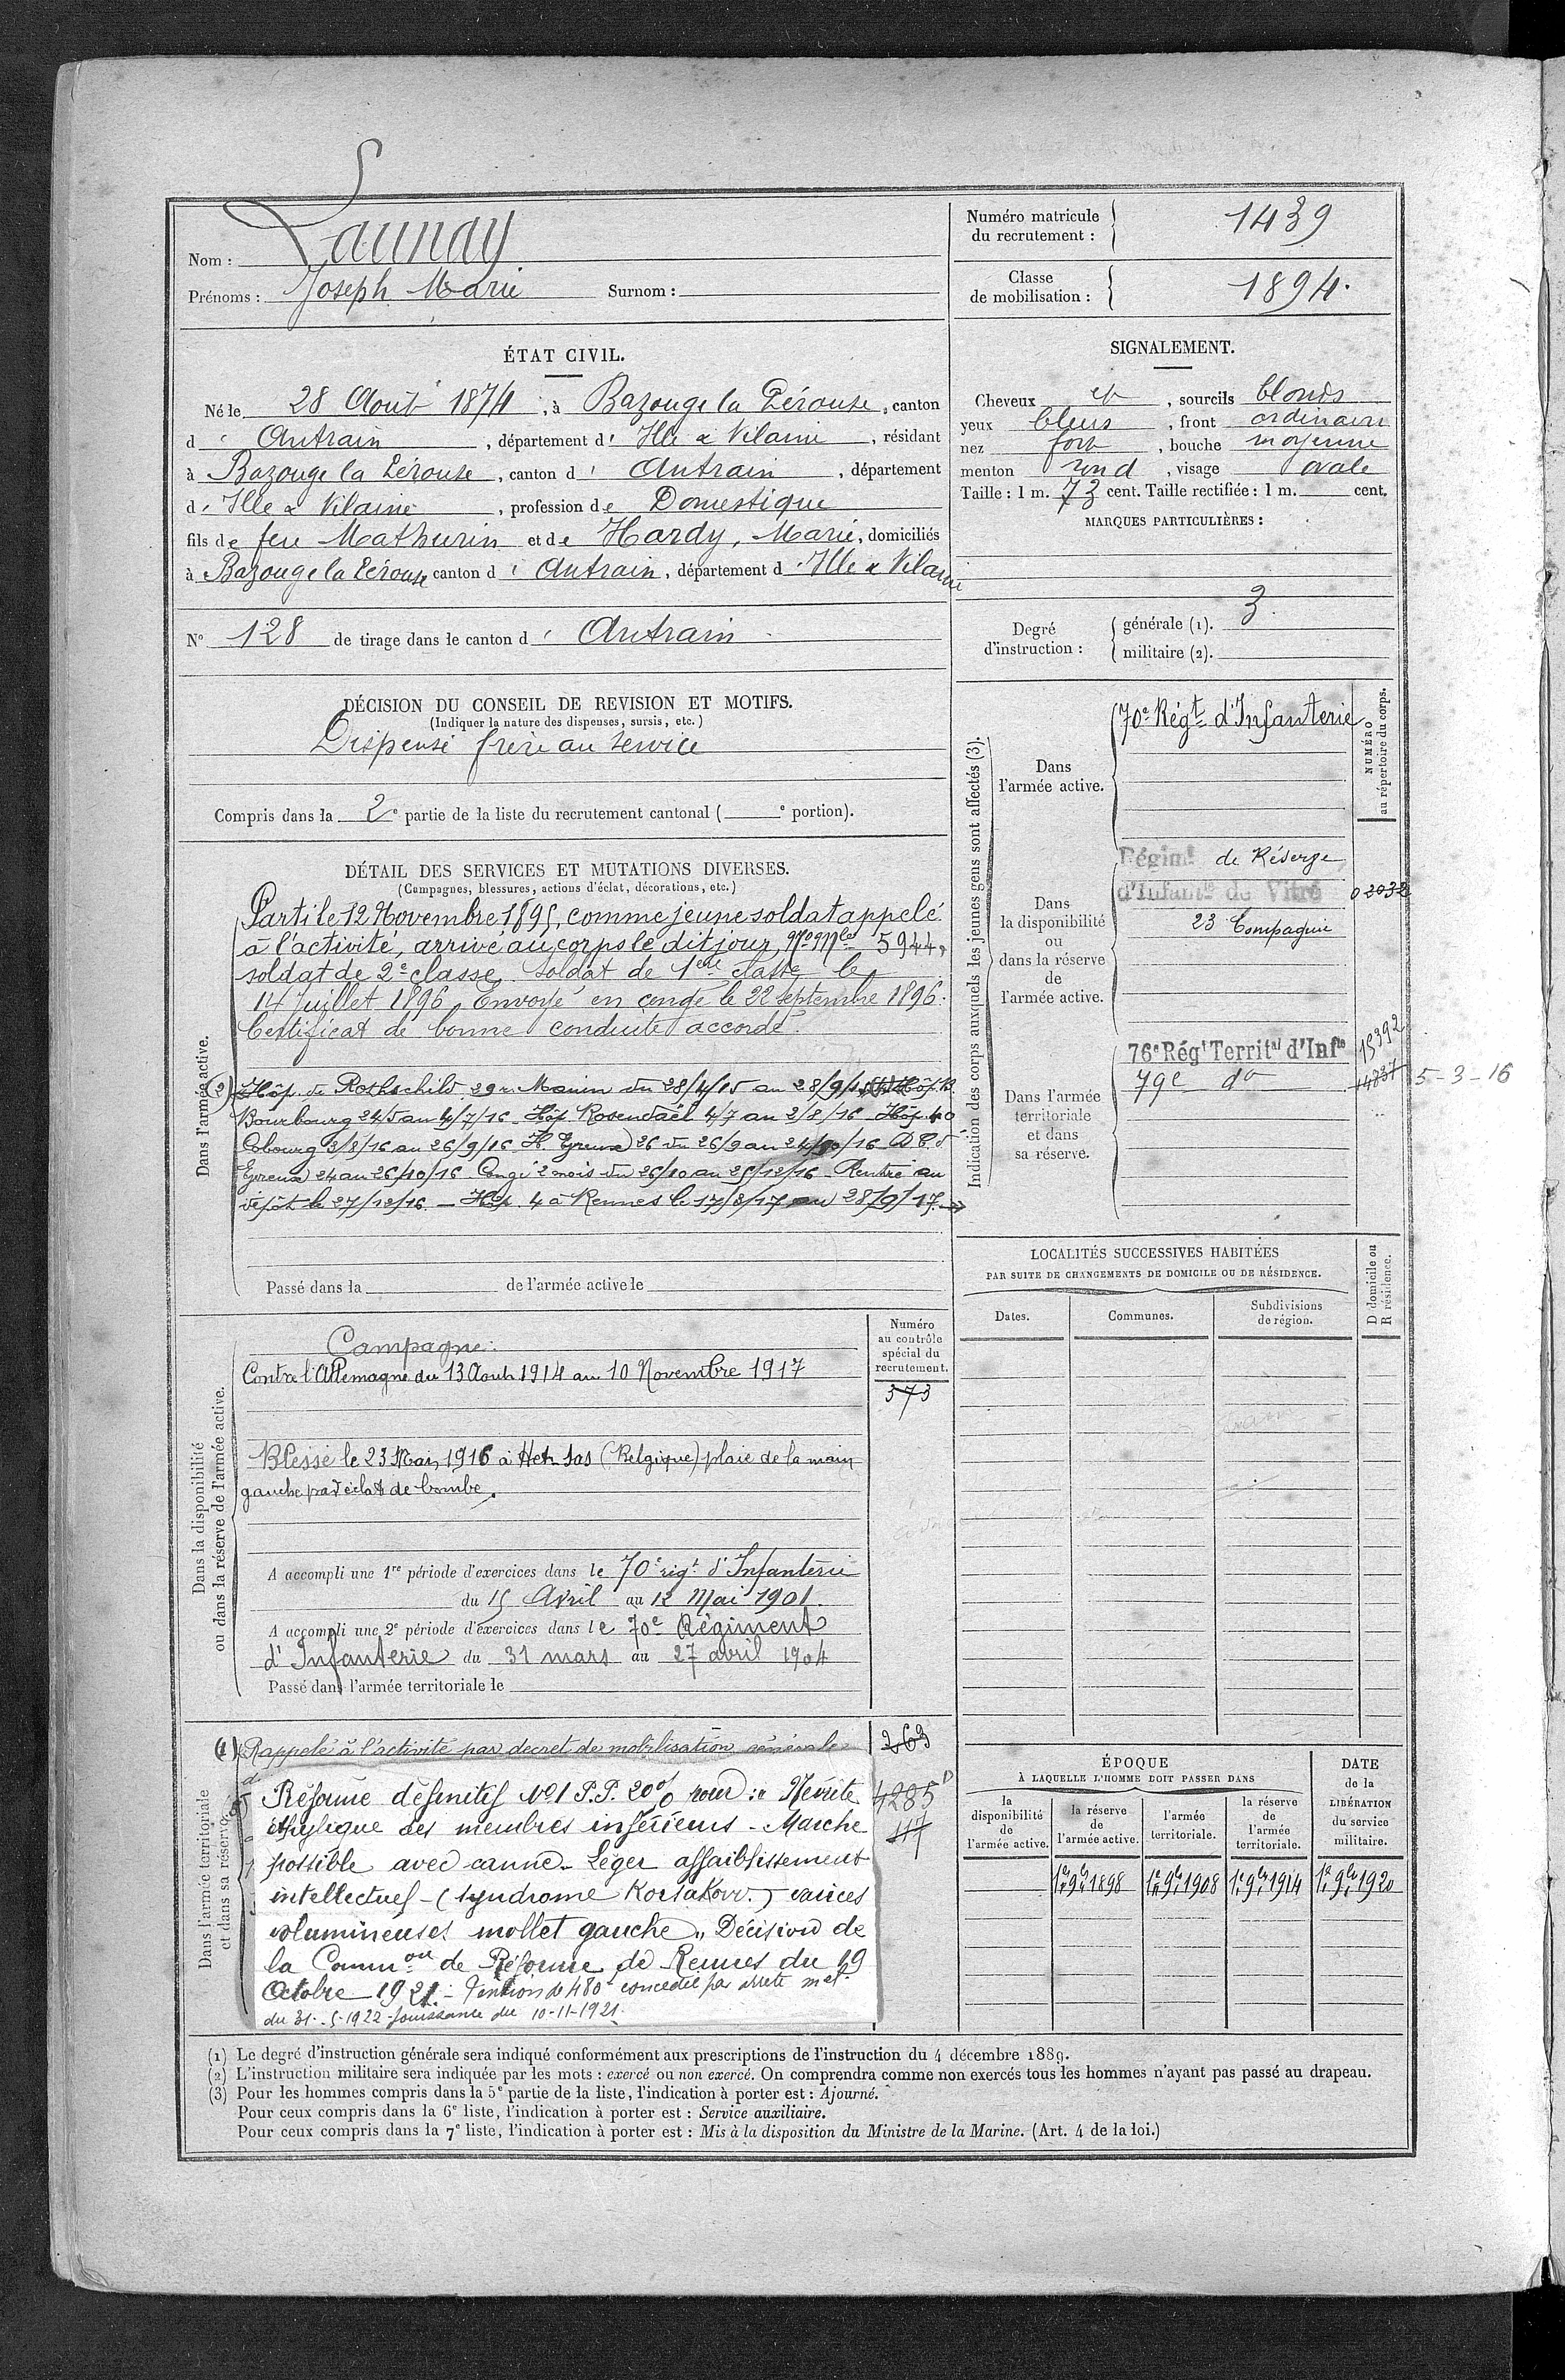 Nom : Launay
Prénoms : Joseph Marie Surnom :
Numéro matricule du recrutement : 1439
Classe de mobilisation : 1894.
ÉTAT CIVIL.
Né le 28 Août 1874, à Bazouge la Pérouse, canton
d' Antrain, département d' Ille & Vilaine, résidant
à Bazouge la Pérouse, canton d' Antrain, département
d' Ille & Vilaine, profession de Domestique
fils de feu Mathurin et de Hardy, Marie, domiciliés
à Bazouge la Pérouse canton d' Antrain, département d' Ille & Vilaine
N° 128 de tirage dans le canton d' Antrain
SIGNALEMENT.
Cheveux et, sourcils blonds
yeux bleus, front ordinaire
nez fort, bouche moyenne
menton rond, visage ovale
Taille : 1 m. 73 cent. Taille rectifiée : 1 m. cent.
MARQUES PARTICULIÈRES :
Degré d'instruction : générale (1). 3.
militaire (2).
DÉCISION DU CONSEIL DE REVISION ET MOTIFS.
(Indiquer la nature des dispenses, sursis, etc.)
Dispensé frère au service
Compris dans la 2e partie de la liste du recrutement cantonal ( e portion).
DÉTAIL DES SERVICES ET MUTATIONS DIVERSES.
(Campagnes, blessures, actions d'éclat, décorations, etc.)
Dans l'armée active.
Parti le 12 Novembre 1895, comme jeune soldat appelé
à l'activité, arrivé au corps le dit jour, No Mle 5944,
soldat de 2e classe. Soldat de 1ere classe le
14 Juillet 1896. Envoyé en congé le 22 septembre 1896.
Certificat de bonne conduite accordé.
(2) Hôp. de Rothschild 29 r. Manin du 28/4/15 au 28/9/15 Hôp. B.
Bourbourg 24/5 au 4/7/16 Hôp Rosendaël 4/7 au 2/8/16 Hôp 40
Cobourg 3/8/16 au 26/9/16 H. Evreux 26 du 26/9 au 24/10/16
Evreux 24 au 26/10/16 Congé 2 mois du 26/10 au 25/12/16 Rentré au
dépôt le 27/12/16 – Hôp. 4 à Rennes le 17/8/17 au 28/9/17. →
Passé dans la de l'armée active le
Indication des corps auxquels les jeunes gens sont affectés (3).
NUMÉRO au répertoire du corps.
Dans l'armée active.
70e Régt d'Infanterie
Dans la disponibilité ou dans la réserve de l'armée active.
Régimt de Réserve
d'Infantie de Vitré 0 2032
23 Compagnie
Dans l'armée territoriale et dans sa réserve.
76e Régt Territal d'Infie 15392
79e do 14837 5-3-16
Dans la disponibilité ou dans la réserve de l'armée active.
Numéro au contrôle spécial du recrutement.
373
Campagne :
Contre l'Allemagne du 13 Août 1914 au 10 Novembre 1917
Blessé le 23 Mai 1916 à Het Sas (Belgique) plaie de la main
gauche par éclat de bombe.
A accompli une 1re période d'exercices dans le 70e régt d'Infanterie
du 15 Avril au 12 Mai 1901.
A accompli une 2e période d'exercices dans le 70e Régiment
d'Infanterie du 31 mars au 27 avril 1904
Passé dans l'armée territoriale le
LOCALITÉS SUCCESSIVES HABITÉES
PAR SUITE DE CHANGEMENTS DE DOMICILE OU DE RÉSIDENCE.
Dates. Communes. Subdivisions de région. D domicile ou R résidence.
Dans l'armée territoriale et dans sa réserve.
(1) Rappelé à l'activité par decret de mobilisation générale
263
4285
117
Réforme définitif No1 P.P. 20% pour : "Nevrite
éthylique des membres inférieurs - Marche
possible avec canne. Léger affaiblissement
intellectuel - (syndrome Korsakow.) varices
volumineuses mollet gauche" Décision de
la Common de Réforme de Rennes du 19
Octobre 1921 - Pension de 480f concédée par arrêté mel
du 31-5-1922 - jouissance du 10-11-1921.
ÉPOQUE
À LAQUELLE L'HOMME DOIT PASSER DANS
la disponibilité de l'armée active. la réserve de l'armée active. l'armée territoriale. la réserve de l'armée territoriale.
DATE de la LIBÉRATION du service militaire.
1er 9bre 1898 1er 9bre 1908 1er 9bre 1914 1er 9bre 1920
(1) Le degré d'instruction générale sera indiqué conformément aux prescriptions de l'instruction du 4 décembre 1889.
(2) L'instruction militaire sera indiquée par les mots : exercé ou non exercé. On comprendra comme non exercés tous les hommes n'ayant pas passé au drapeau.
(3) Pour les hommes compris dans la 5e partie de la liste, l'indication à porter est : Ajourné.
Pour ceux compris dans la 6e liste, l'indication à porter est : Service auxiliaire.
Pour ceux compris dans la 7e liste, l'indication à porter est : Mis à la disposition du Ministre de la Marine. (Art. 4 de la loi.)